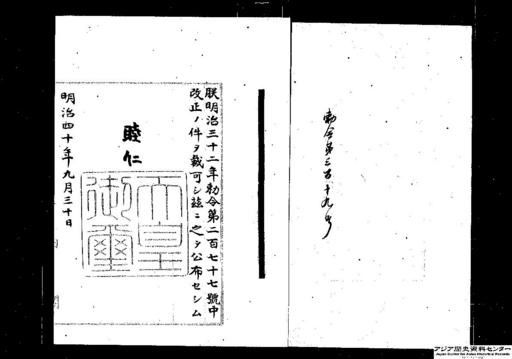 勅令第三百十九号
朕明治三十二年勅令第二百七十七號中
改正ノ件ヲ裁可シ茲ニ之ヲ公布セシム
睦仁
天皇
御璽
明治四十年九月三十日
アジア歴史資料センター
Japan Center for Asian Historical Records